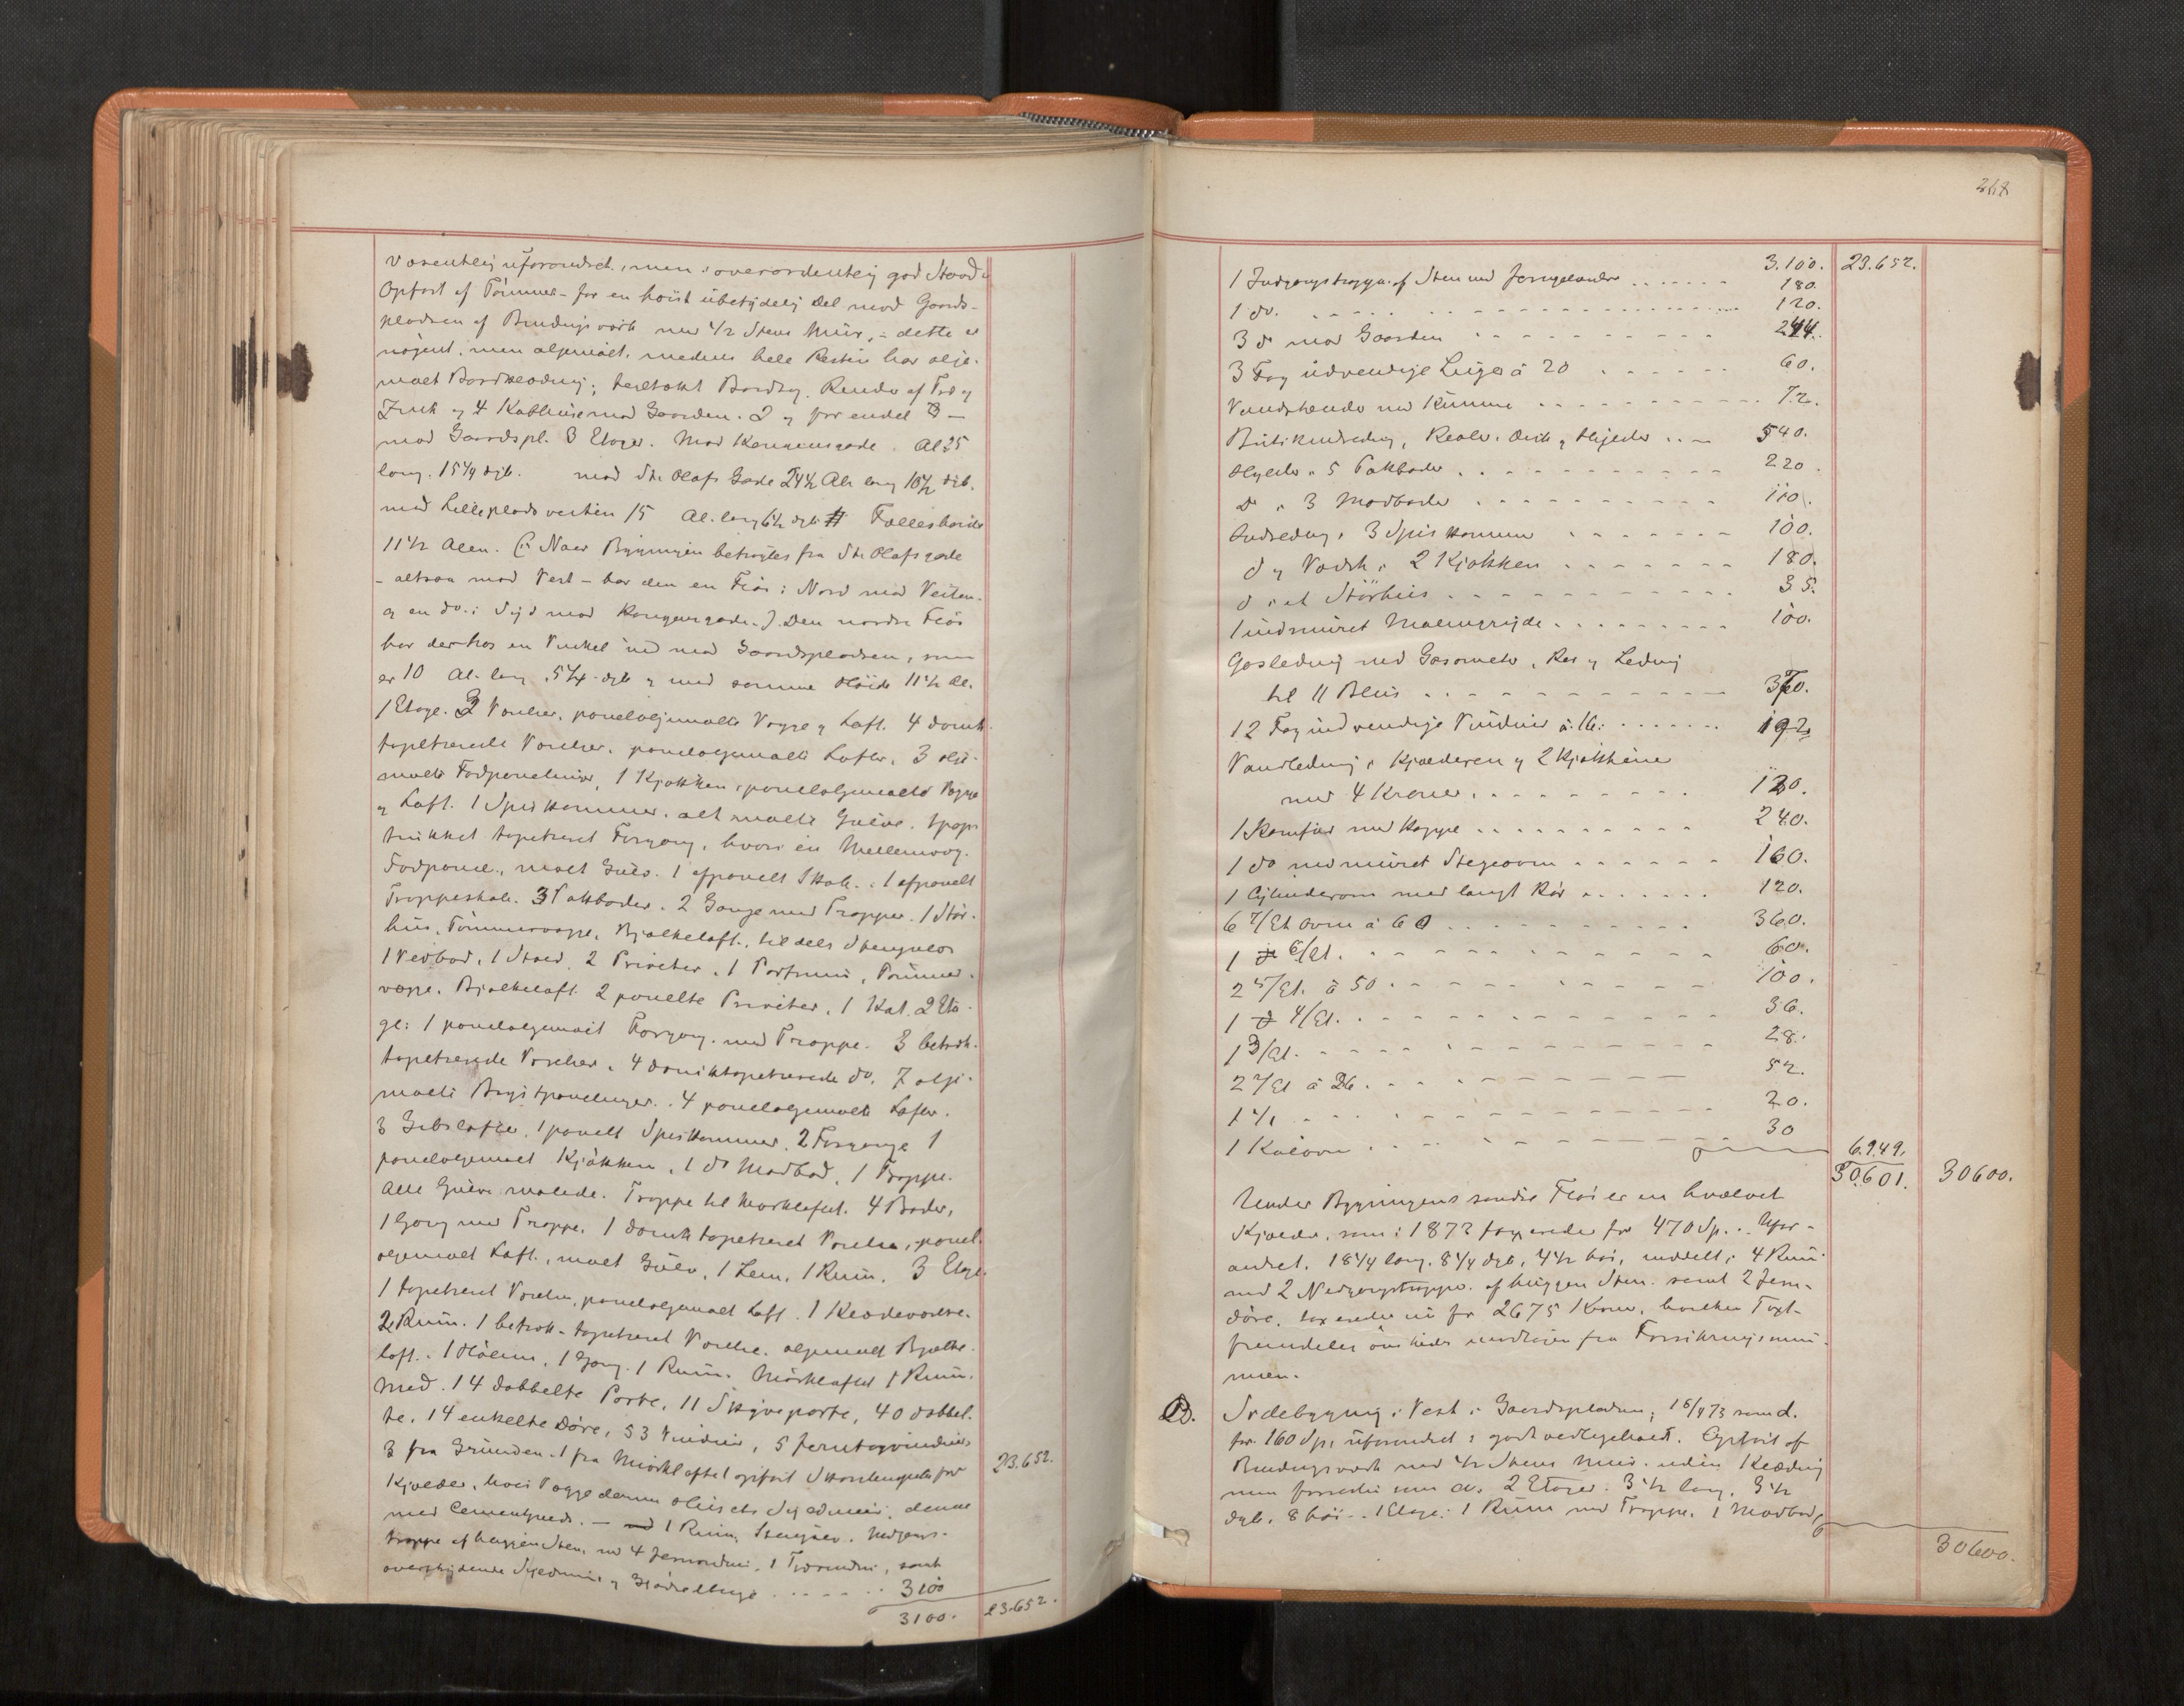 væsentlig uforandret, men i overordentlig god Stand.
Opført af Tømmer – for en høist ubetydelig Del mod Gaards-
pladsen af Bindingsværk med 1/2 Stens Mur, – dette er
nøgent, men oljemalt, medens hele Resten har olje-
malt Bordklædning; teglhængt Bordtag. Render af Træ og
Zink og 4 Kathuse mod Gaarden. 2 og for endel 3 –
mod Gaardspl. 3 Etager. Mod Kongensgade Al 25
lang. 15 1/4 dyb. mod St. Olafs Gade 24 1/2 Aln lang 10 1/2 dyb.
mod Lilleplads veiten 15 Al. lang 6 1/2 dyb Fælleshøide
11 1/2 Alen. (: Naar Bygningen betragtes fra St. Olafsgade
– altsaa mod Vest – har den en Fløi i Nord mod Veiten.
og en do. i Syd mod Kongensgade.) Den nordre Fløi
har derhos en Vinkel ind mod Gaardspladsen, som
er 10 Al. lang, 5 1/4 dyb og med samme Høide 11 1/2 Al.
1 Etage. 2 Værelser, paneloljemalte Vægge og Loft. 4 donk
tapetserede Værelser, paneloljemalte Lofter, 3 olje-
malte Fodpanelinger, 1 Kjøkken, paneloljemalte Vægge
og Loft. 1 Spiskammer, alt malte Gulve. 1 pap-
trukket tapetseret Forgang, hvori en Mellemvæg.
Fodpanel, malt Gulv. 1 afpanelt Skab. 1 afpanelt
Trappeskab. 3 Pakboder. 2 Gange med Trapper. 1 Stør-
hus, Tømmervægge, Bjælkeloft, tildels Stengulv
1 Vedbod, 1 Stald, 2 Priveter, 1 Portrum, Tømmer-
vægge. Bjælkeloft. 2 panelte Priveter, 1 Kot. 2 Eta-
ge: 1 paneloljemalt Forgang med Trappe. 3 betræk-
tapetserede Værelser, 4 donktapetserede do. 7 olje-
malte Brystpanelinger. 4 paneloljemalte Lofter.
3 Gibslofter, 1 panelt Spiskammer, 2 Forgange 1
paneloljemalt Kjøkken, 1 do Madbod, 1 Trappe.
Alle Gulve malede. Trappe til Mørkloftet. 4 Boder,
1 Gang med Trappe. 1 donk tapetseret Værelse, panel-
oljemalt Loft, malt Gulv, 1 Lem, 1 Rum. 3 Etage.
1 tapetseret Værelse, paneloljemalt Loft. 1 Klædeværelse.
2 Rum. 1 betræk-tapetseret Værelse. oljemalt Bjælke-
loft. 1 Gang. 1 Rum. Mørkloftet 1 Rum.
Med. 14 dobbelte Porte, 11 Skyveporte, 40 dobbel-
te, 14 enkelte Døre, 53 Vinduer, 5 Jerntagvinduer
3 fra Grunden. 1 fra Mørkloftet opført Skorstenspiber for 23.652.
Kjælder, hvis Vægge dannes Husets Sydmur, denne
med Cementpuds. – 1 Rum, Stengulv. Nedgangs-
trappe af huggen Sten, med 4 1 samt
overskydende . . . . . 3100
3100. 23.652.
268
3.100. 23.652.
1 Indgangstrappe af Sten med Jerngelænder . . . . . . . 180.
1 do. . . . . . . . . . . . 120.
3 do mod Gaarden . . . . . . . . 244.
3 Fag udvendige Luger à 20 . . . . . . 60.
Vandrender med Kumme . . . . . . . . . 72.
Butikindredning, Reoler, Disk og Hylder . . . 540.
Hylder i 5 Pakboder . . . . . . . . . 220.
Do i 3 Madboder . . . . . . . . . 110.
Indredning i 3 Spiskammer . . . . . . . 100.
do og Vadsk i 2 Kjøkken . . . . . . . 180.
do i et Störhus . . . . . . . . . . . 35.
1 indmuret Malmgryde . . . . . . . . . 100.
Gasledning med Gasometer, Rør og Ledning
til 11 Blus . . . . . . . . . . . . 360.
12 Fag indvendige Vinduer à 16: . . . . . . 192.
Vandledning i Kjælderen og 2 Kjøkkener
med 4 Kraner. . . . . . . . . . 120.
1 Komfur med Kappe . . . . . . . . . . 240.
1 do med muret Stegeovn . . . . . . 160.
1 Cylinderovn med langt Rør . . . . . . . 120.
6 7/Et. Ovne à 60 . . . . . . . . . . . 360.
1 do 6/Et. . . . . . . . . . . . . 60.
2 5/Et. à 50 . . . . . . . . . . . . 100.
1 do 4/Et. . . . . . . . . . . . . 36.
1 3/Et. . . . . . . . . . . . . . 28.
2 2/Et à 26. . . . . . . . . . . . 52.
1 1/1 . . . . . . . . . . . . . 20.
1 Kulovn . . . . . . . . . . . . 30 6.949.
30.601. 30600.
Under Bygningens søndre Fløi er en hvælvet
Kjælder, som i 1873 taxeredes for 470 Sp. Ufor-
andret. 18 1/4 lang, 8 1/4 dyb, 4 1/2 høi, inddelt i 4 Rum
med 2 Nedgangstrapper af huggen Sten, samt 2 Jern-
døre, taxeredes nu for 2675 Kroner, hvilken Taxt
fremdeles ønskedes undtagen fra Forsikringssum-
men.
B. Sidebygning i Vest i Gaardspladsen, 16/4 73 samd.
for 160 Sp, uforandret i godt vedligehold. Opført af
Bindingsværk med 1/2 Stens Mur uden Klædning
men forresten som A. 2 Etager. 3 1/2 lang, 3 1/2
dyb. 8 høi – 1 Etage: 1 Rum med Trappe, 1 Madbod,
30600.